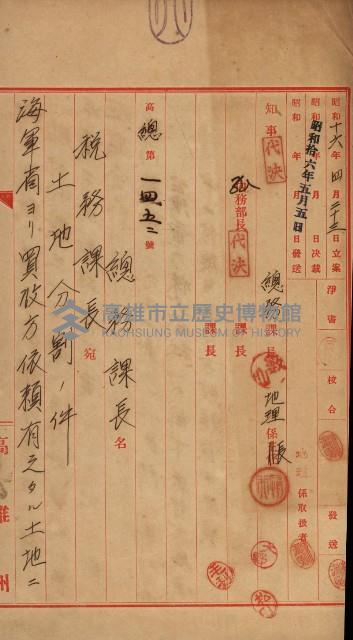 昭和十六年四月二十三日立案
昭和 年 月 日決裁
昭和 年 月 日發送
昭和拾六年五月五日
淨書
校合
發送
知事
代決
總務部長
代決
總務課長
課長
課長
地理係長
係取扱者
高總第一四五二號
總務課長名
税務課長宛
土地分割ノ件
海軍省ヨリ買收方依頼有之タル土地ニ
高雄州
高雄市立歷史博物館
KAOHSIUNG MUSEUM OF HISTORY